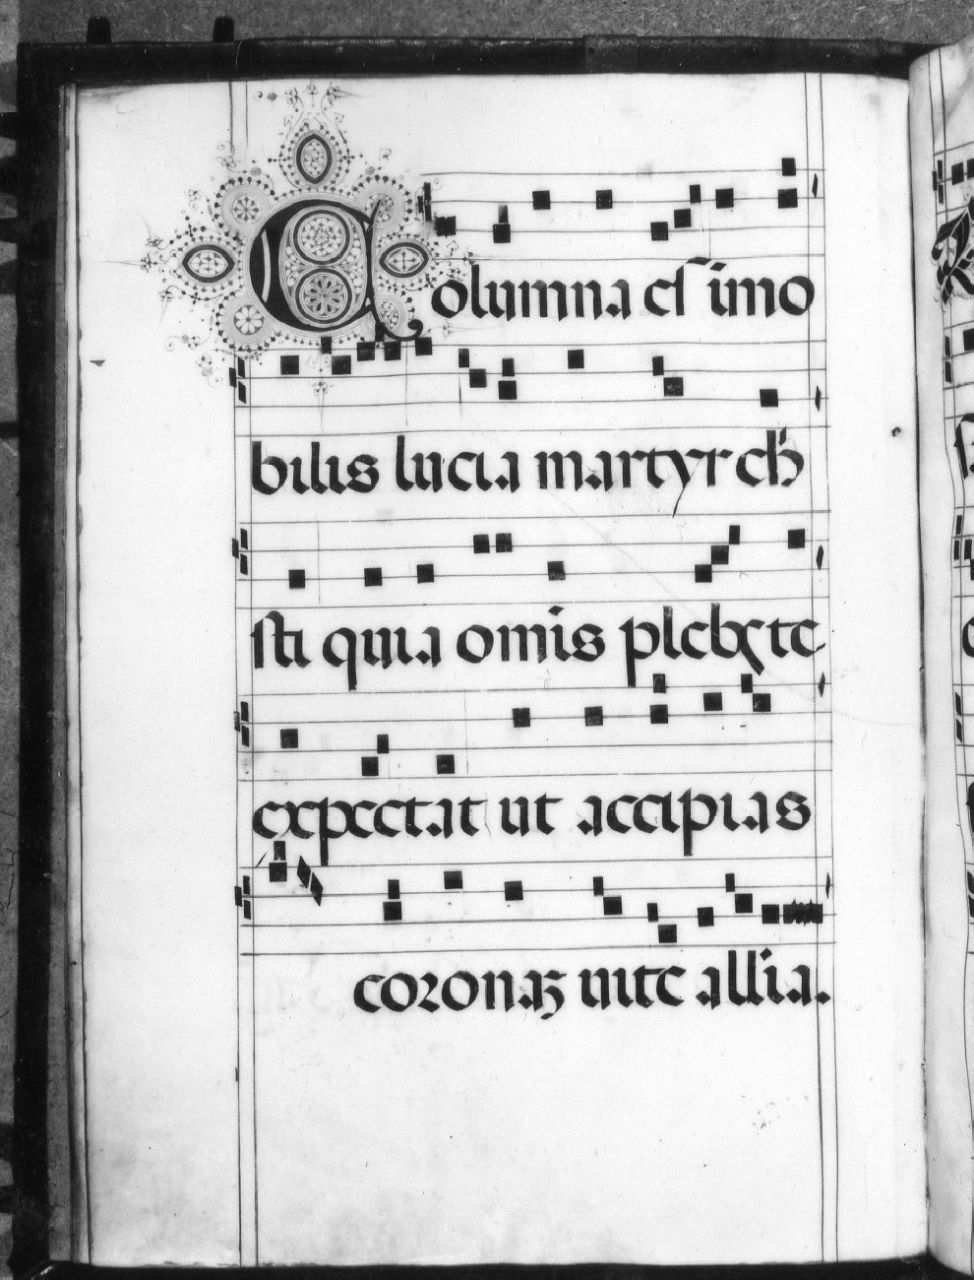 Columna es imo
bilis lucia martyr ch̄
sti quia om̄is plebs te
expectat ut accipias
coronaꝫ uite allīa.